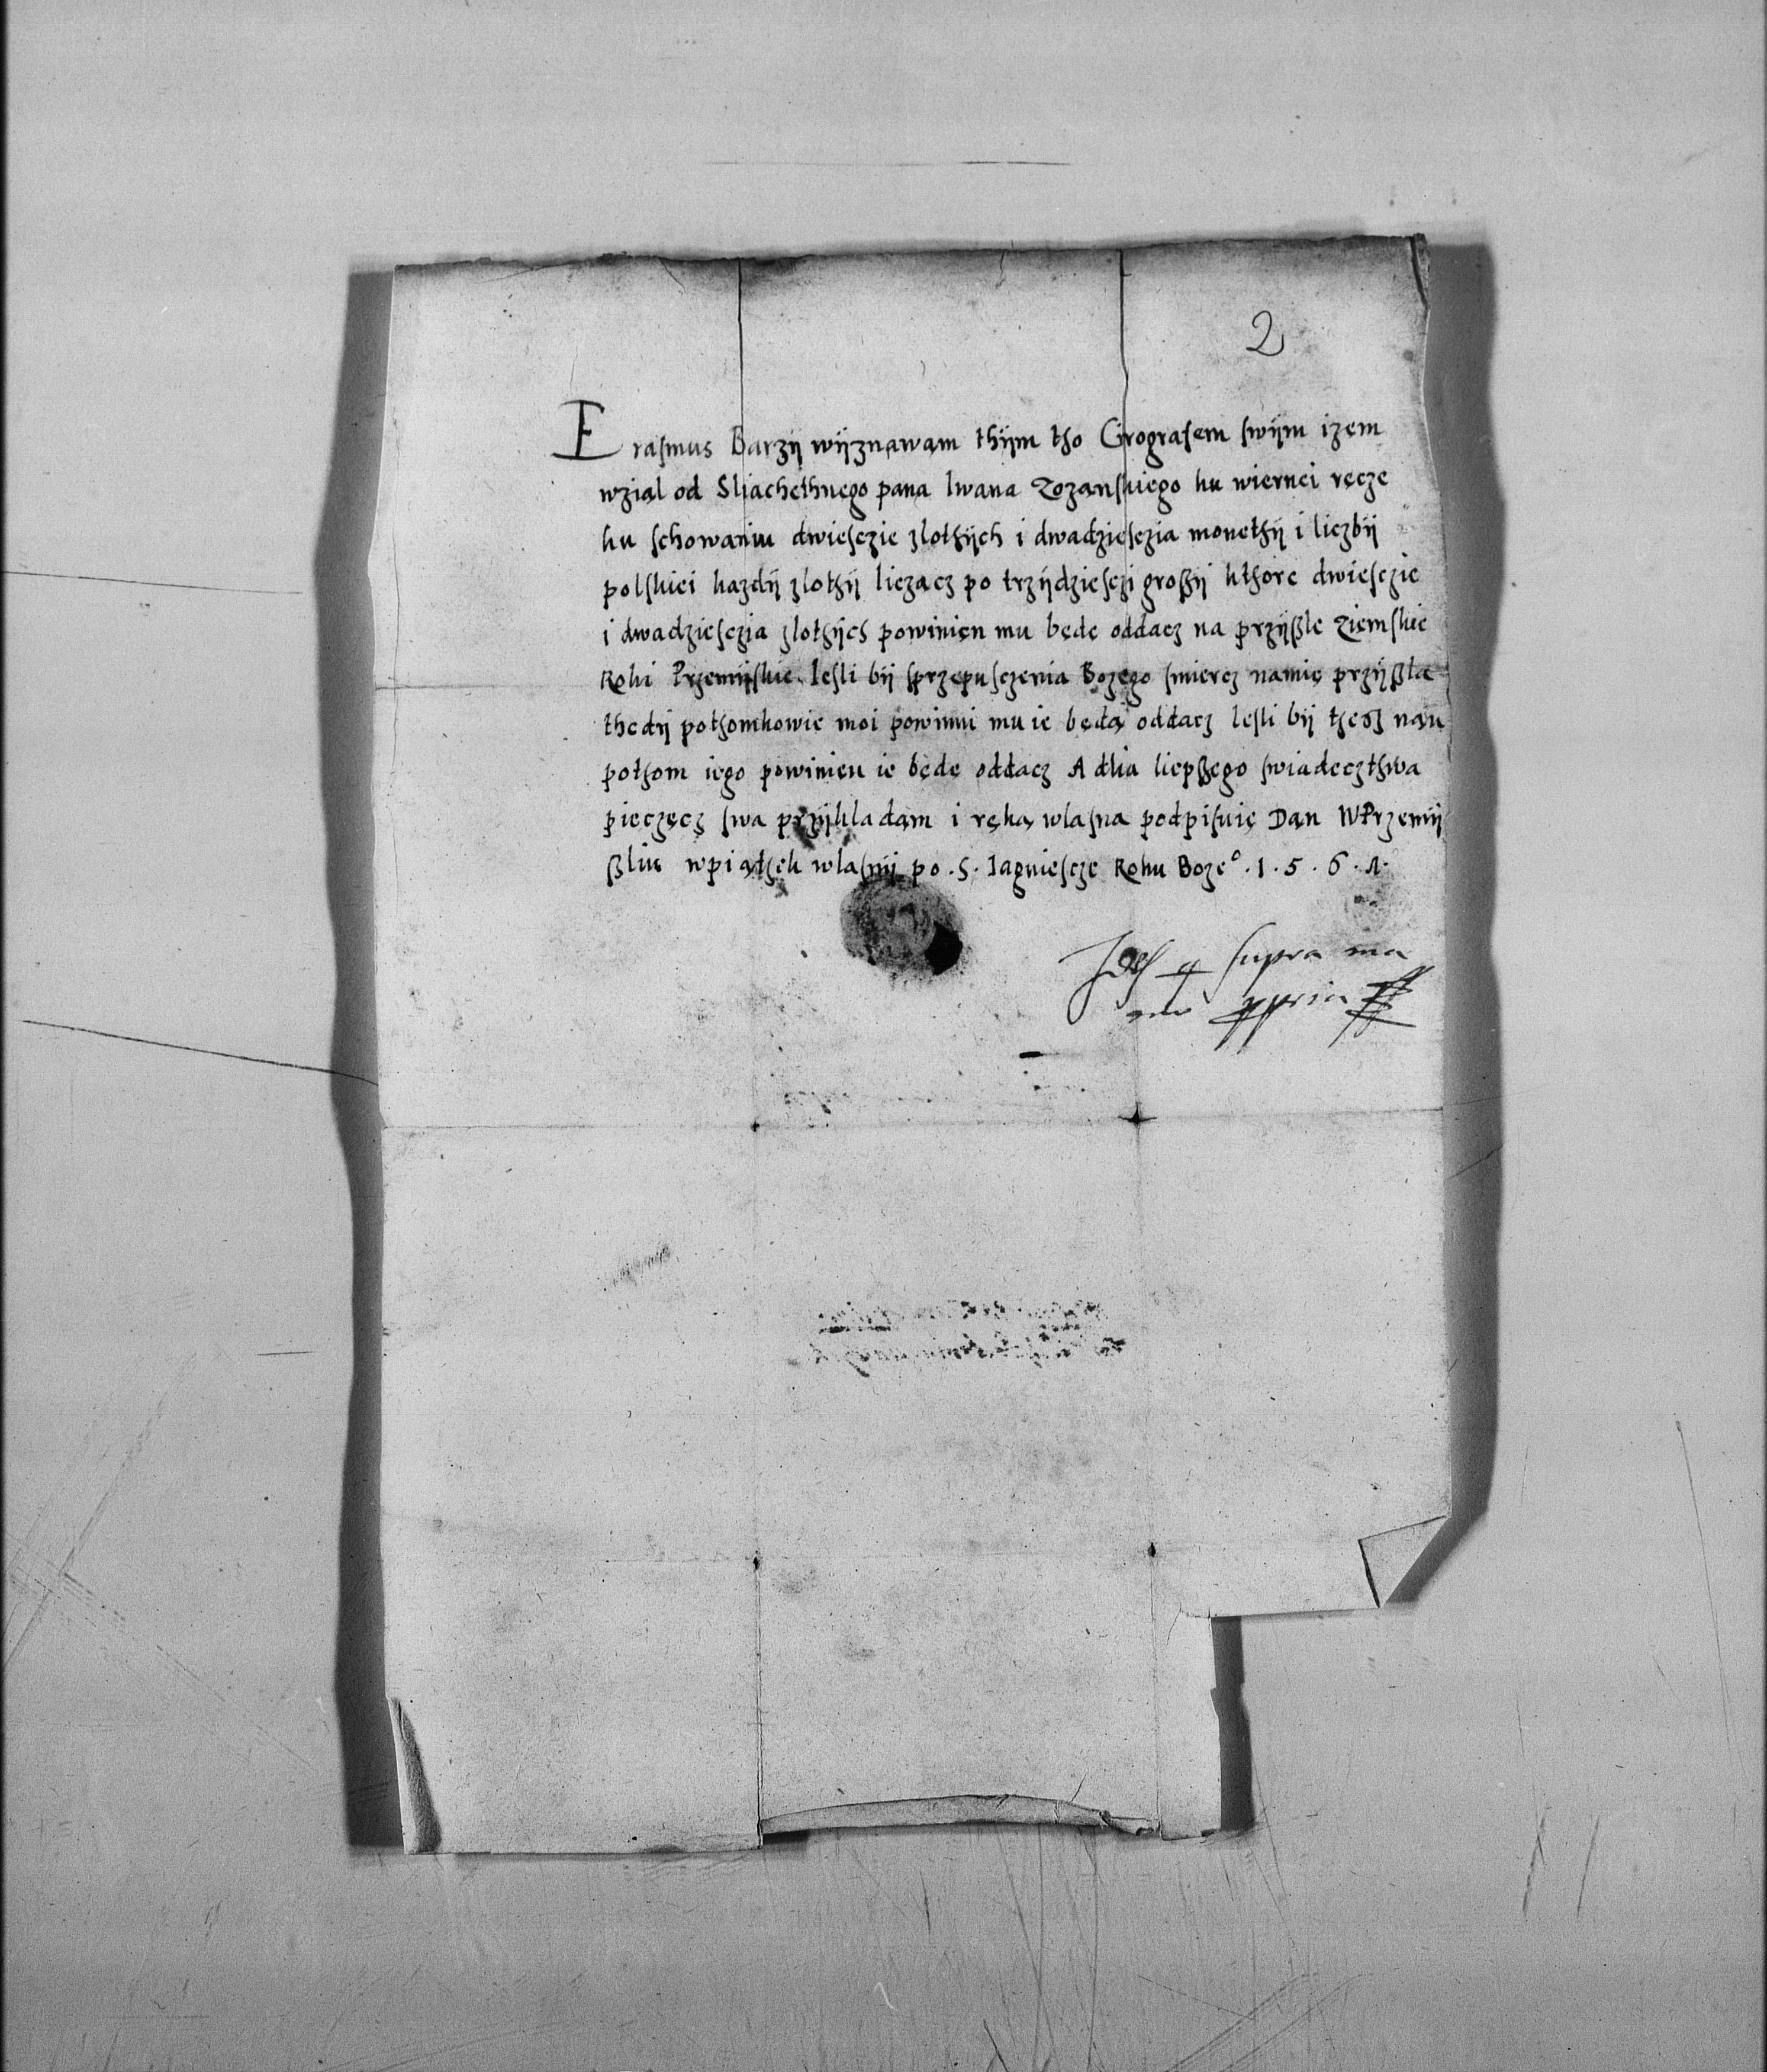 2
Erasmus Barzÿ wÿznawam thÿm tho Cirografem swÿm izem
wziąl od Sliachethnego pana Iwana Zozanskiego ku wiernei ręcze
ku schowaniu dwiesczie zlothÿch i dwadziesczia monethÿ i liczbÿ
polskiei kazdÿ zlothÿ liczacz po trzÿdziesczi großÿ kthore dwiesczie
i dwadziesczia zlothÿch powinięn mu będę oddacz na przÿßle Ziemskie
Roki Przemÿskie Iesli bÿ sprzepusczenia Bozego smiercz namię przÿßla
thedÿ pothomkowie moi powinni mu ie będą oddacz Iesli bÿ thesz nan
pothom iego powinien ie będę oddacz A dlia liepßego swiadecżthwa
pieczęcz swa przÿkladam i ręką wlasna podpisuię Dan WPrzemÿ
ßliu wpiąthek wlasnÿ po .S. Iagniesce Roku Boze° .1.5.6.1.
supra ma
ppria